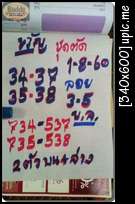 ขวัญ ชุดตัด
34-37 1-8-60
35-38 ลอย
3-5
734-537 น.ล.
735-538
2ตัวบนล่าง
[540x600]upic.me